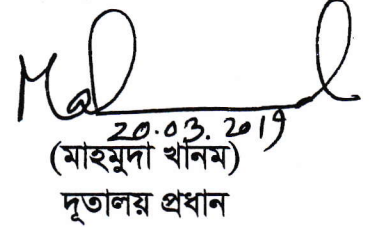 20.03.2019
(মাহমুদা খানম)
দূতালয় প্রধান